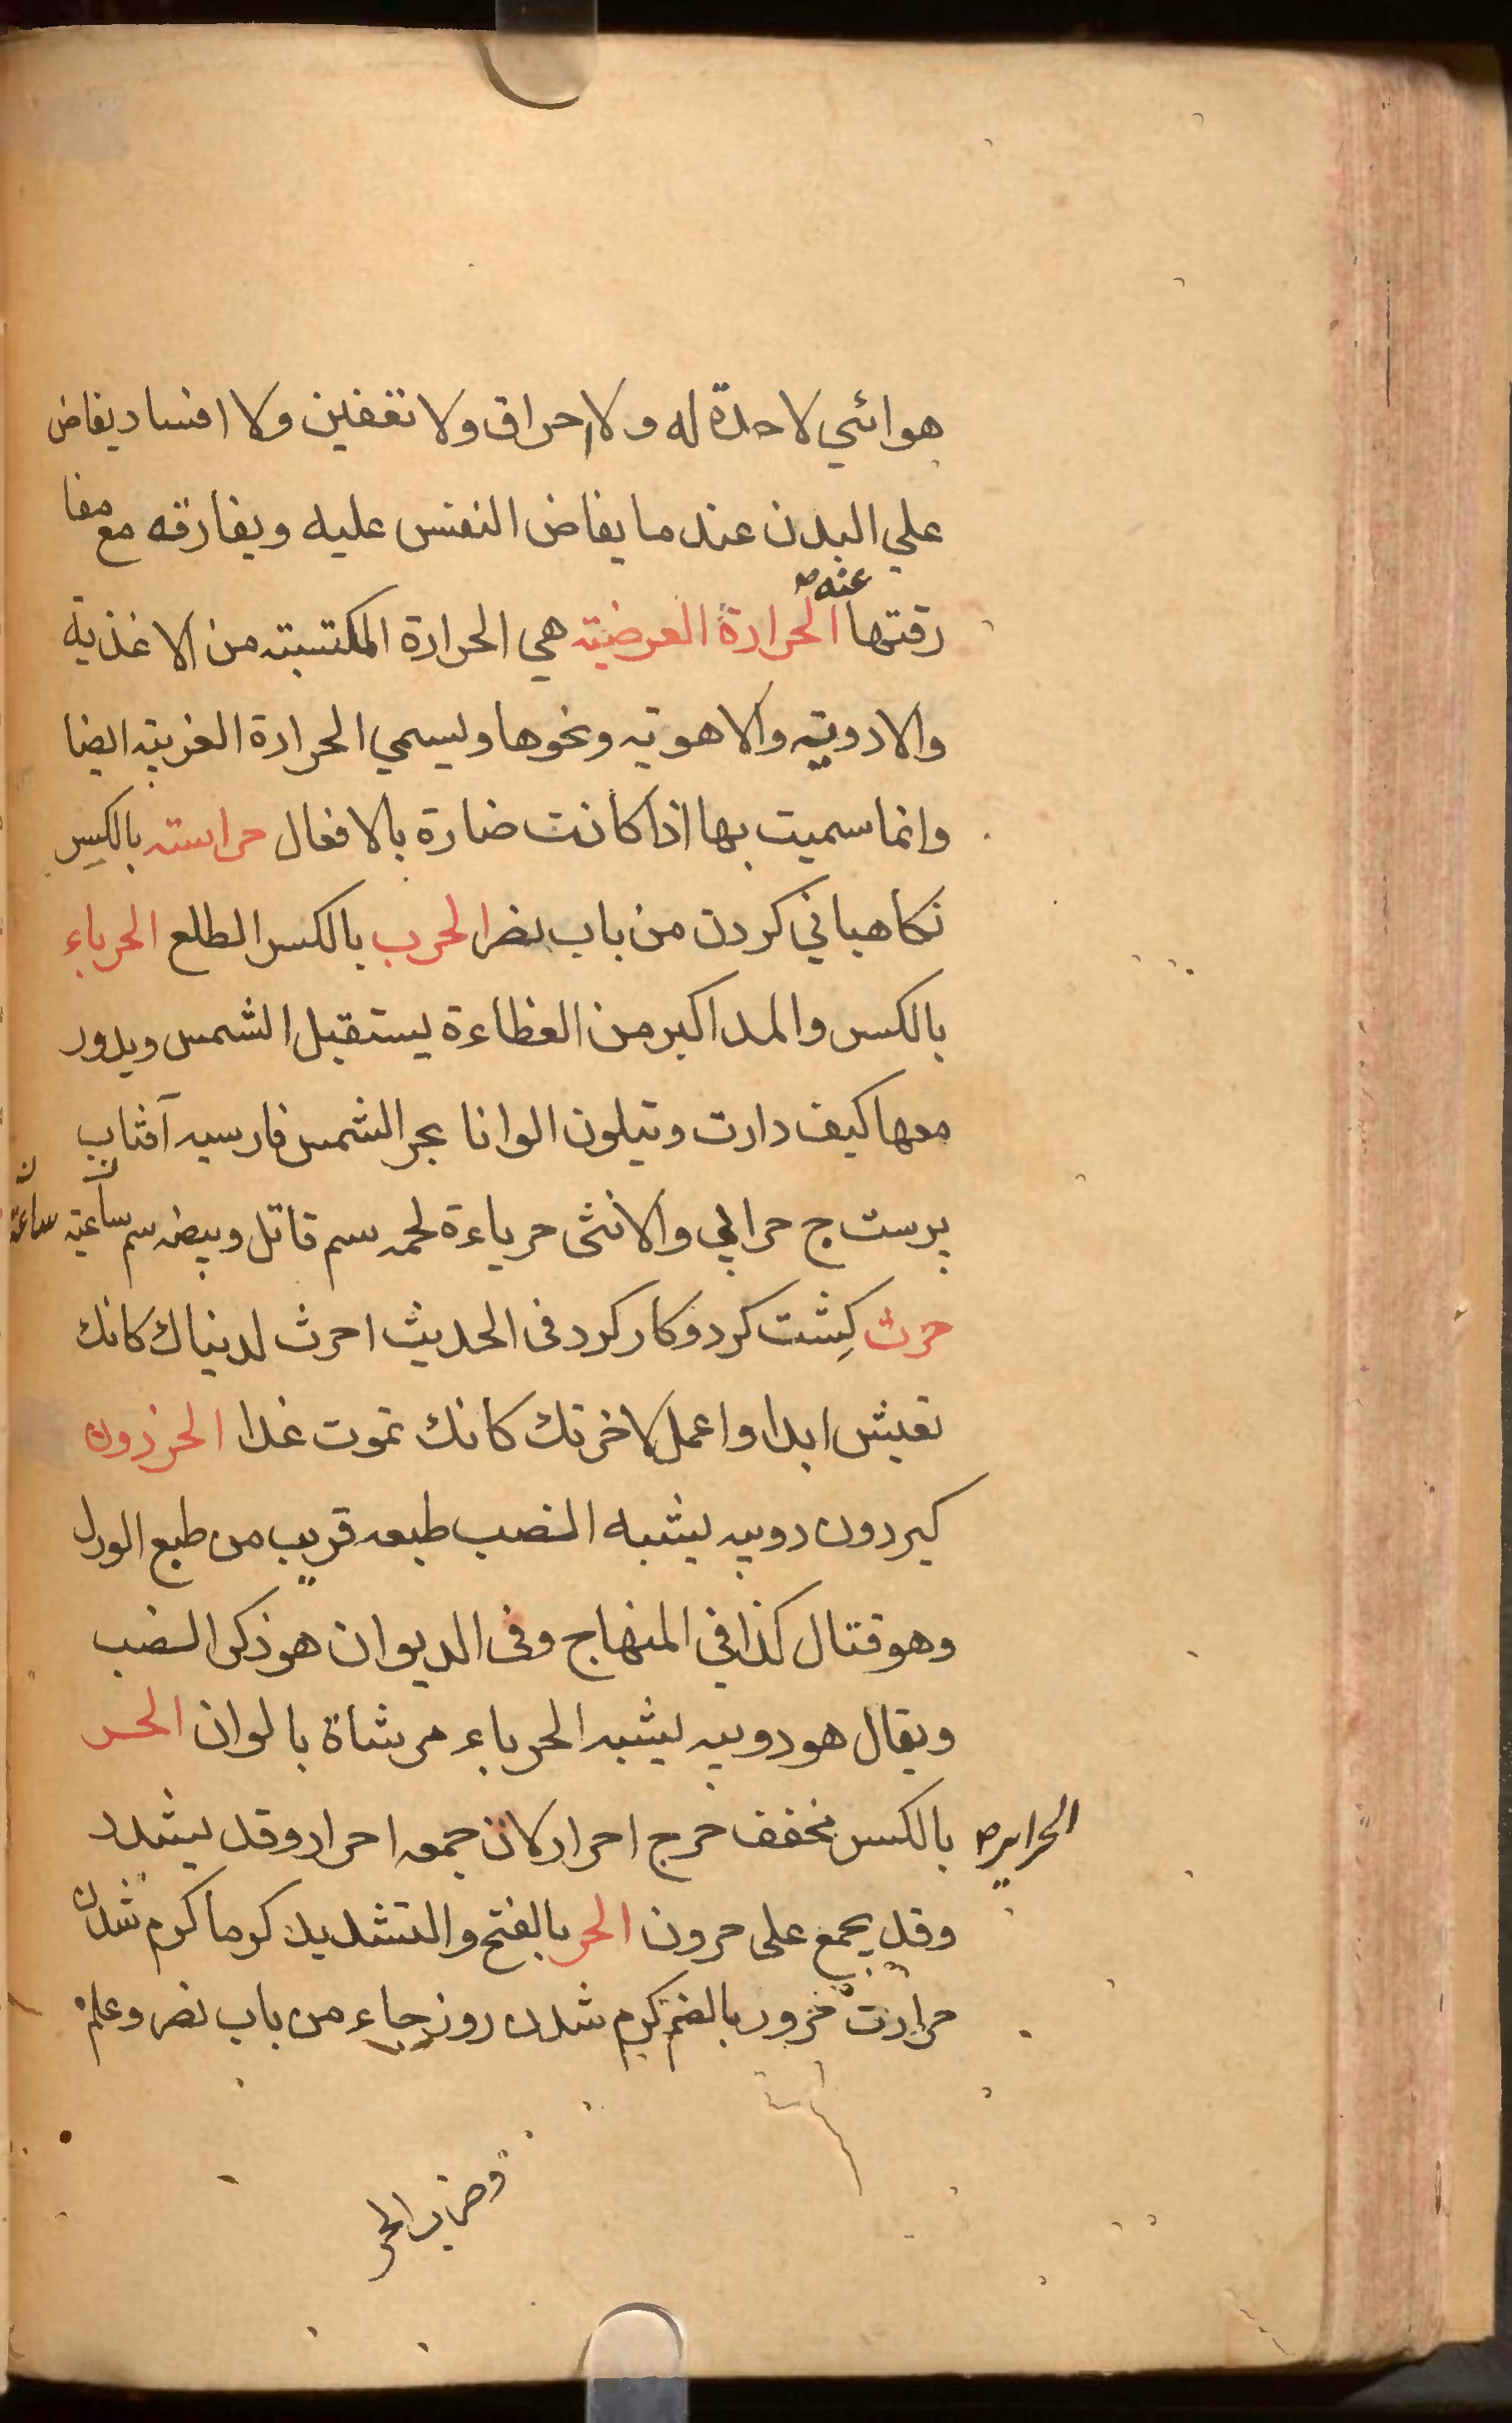 هوائي لا حدة له ولا احراق ولا تعفين ولا افساد يفاض
علي البدن عند ما يفاض النفس عليه ويفارقه مع مفا
عنه
رقتها الحرارة العرضية هي الحرارة المكتسبة من الاغذية
والادوية والاهوية ونحوها ويسمي الحرارة الغريبة ايضا
وانما سميت بها اذا كانت ضارة بالافعال حراسته بالكسر
نكاهباني كردن من باب نصر الحرب بالكسر الطلع الحرباء
بالكسر والمد اكبر من العظاءة يستقبل الشمس ويدور
معها كيف دارت وتيلون الوانا بحر الشمس فارسيه آفتاب
پرست ج حرابي والانثى حرباءة لحمه سم قاتل وبيضه سم ساعته
ساعة
حرث كِشت كرد وكار كرد فى الحديث احرث لدنياك كانك
تعيش ابدا واعمل لاخرتك كانك تموت غدا الحرذون
كبردون دويبه يشبه الضب طبعه قريب من طبع الورل
وهو قتال كذا في المنهاج وفى الديوان هو ذكر الضب
ويقال هو دويبه يشبه الحرباء مرشاة بالوان الحر
بالكسر مخفف حرج احرار لان جمعه احرار وقد يشدد
الحراير
وقد يجمع على حرون الحر بالفتح والتشديد كرما كرم شدن
حرارت حرور بالضم كرم شدن روز جاء من باب نصر وعلم
وضرب الحر